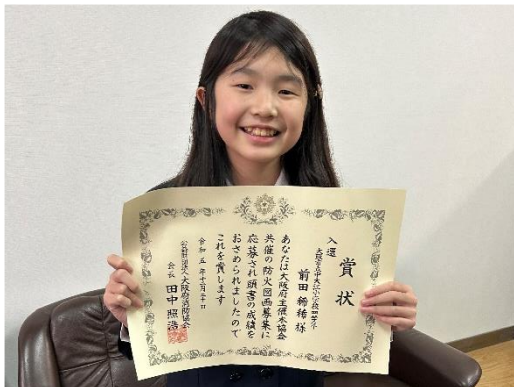 賞状
入選
前田 稀稀 様
あなたは大阪府主催本協会
共催の防火図画募集に
応募され頭書の成績を
おさめられましたので
これを賞します
令和五年十月三十日
公益財団法人大阪府消防協会
会長 田中照浩